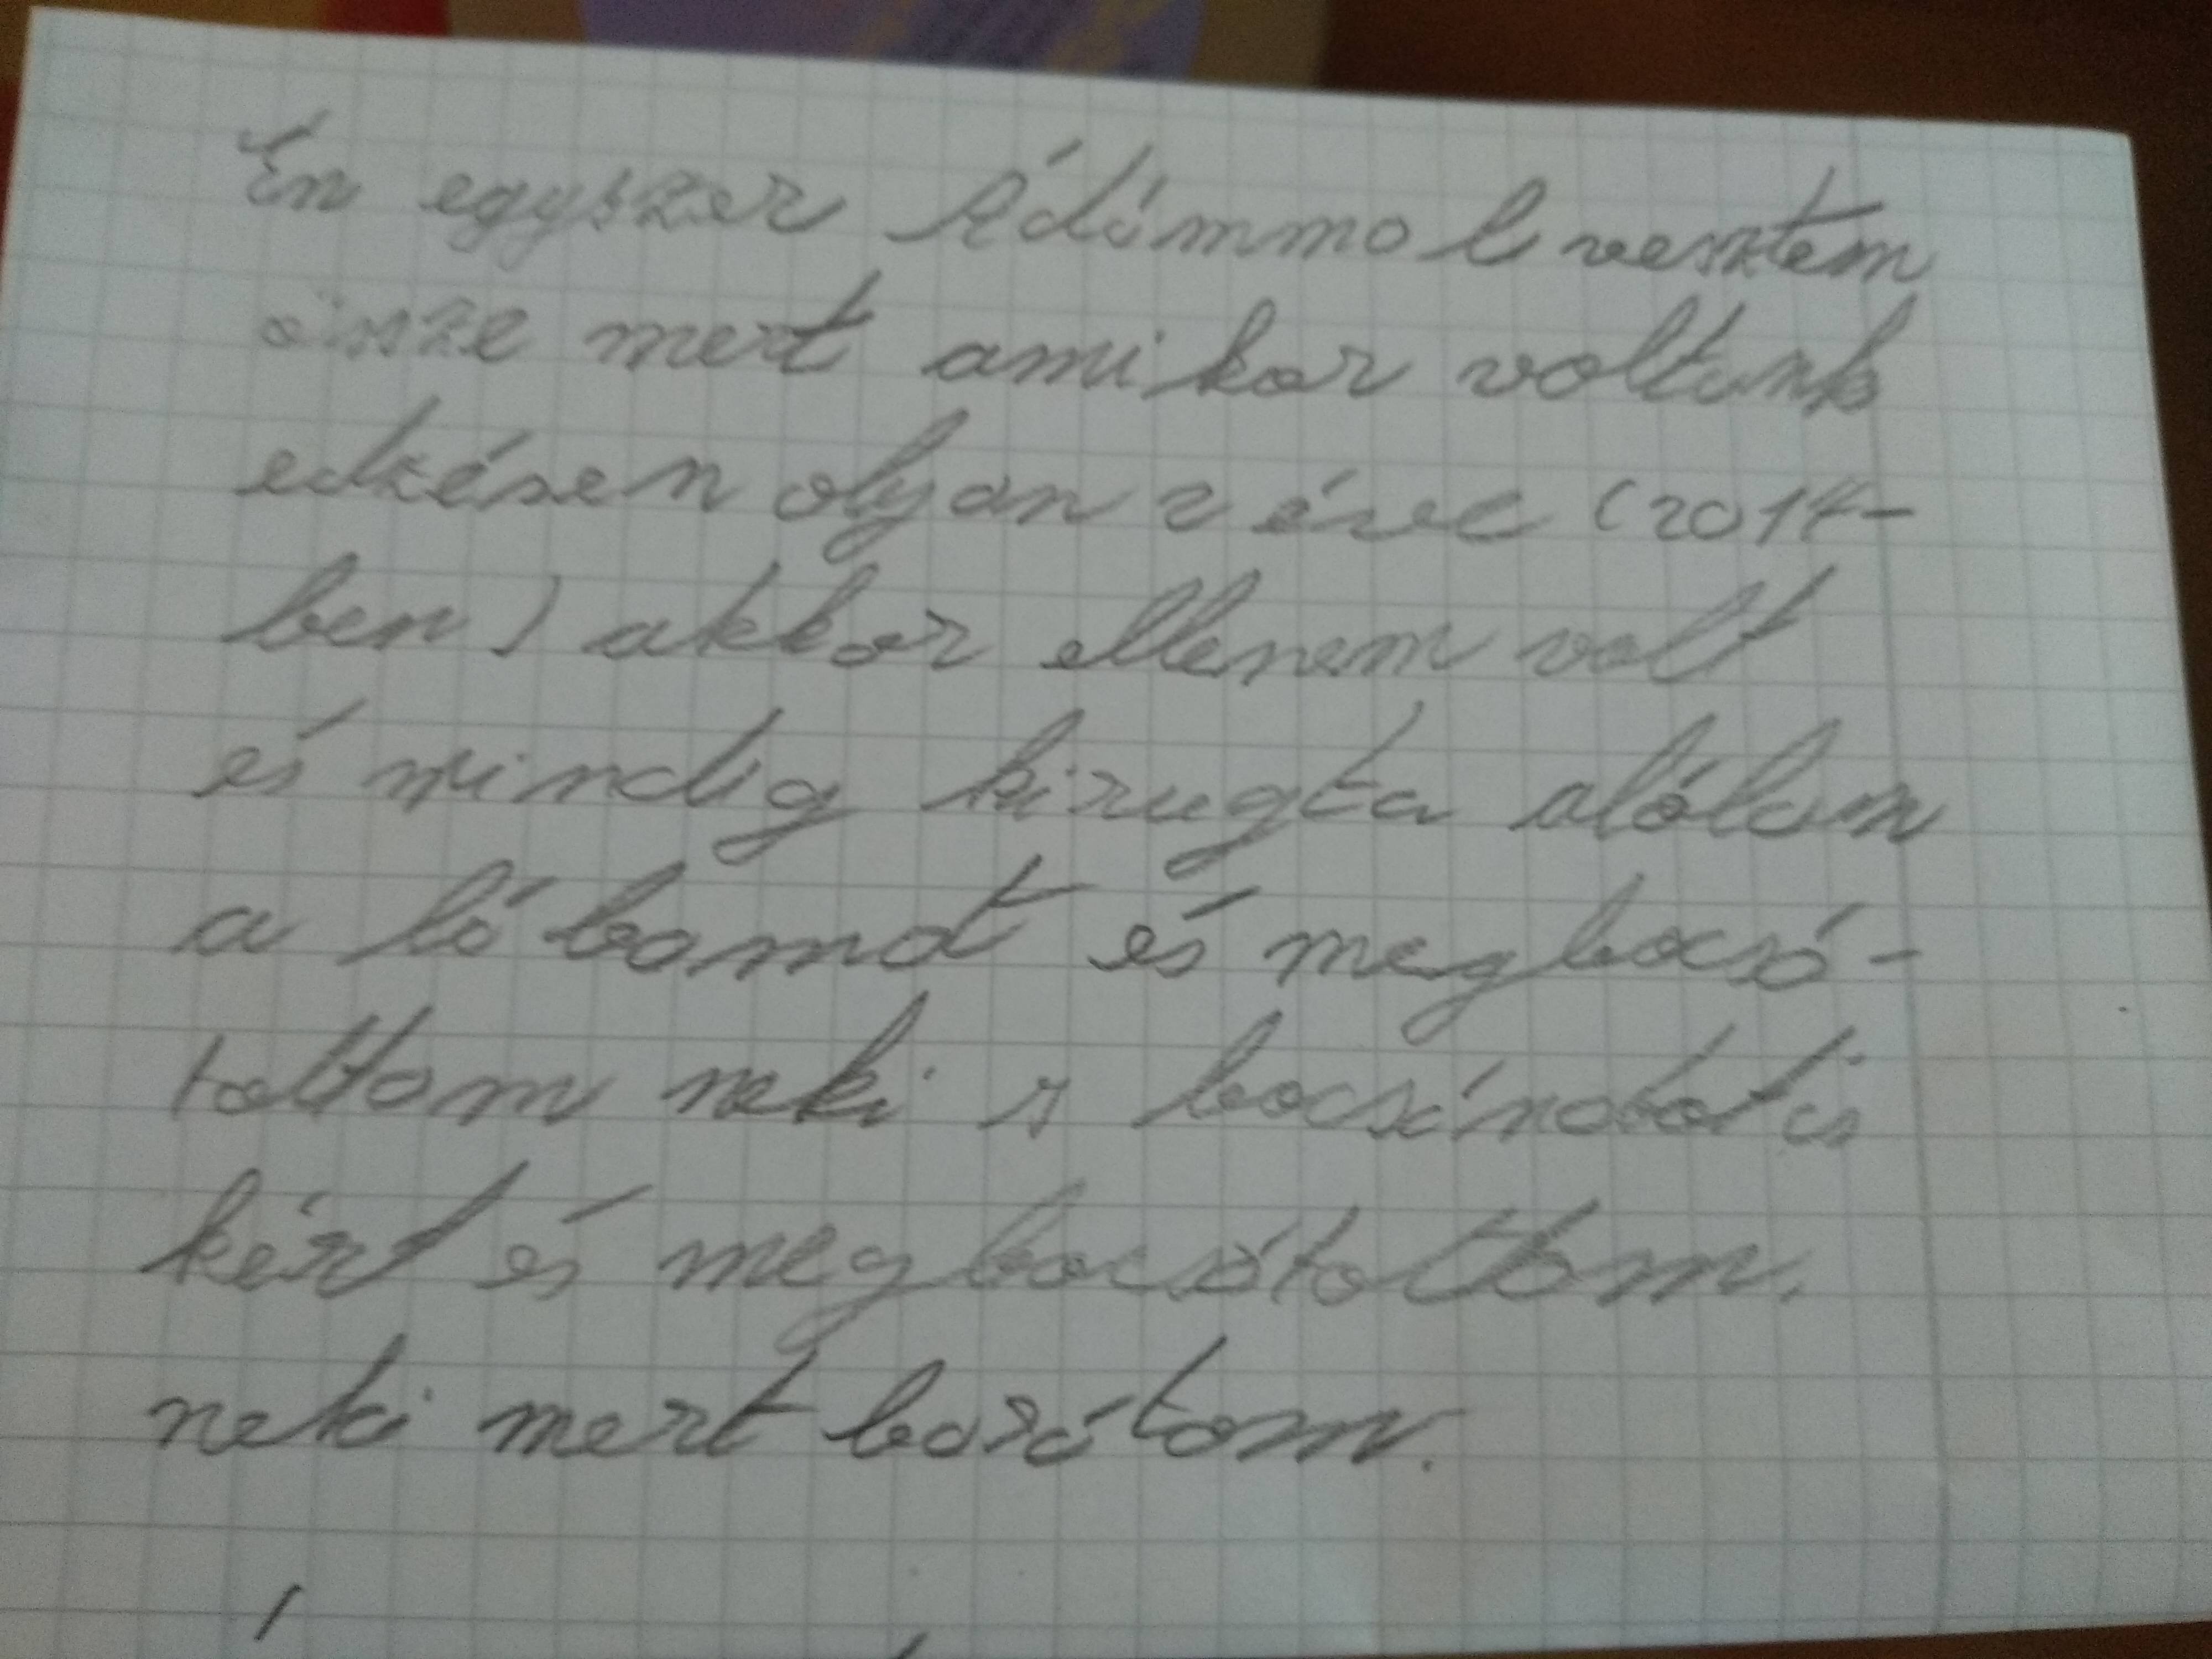 Én egyszer Ádámmal vesztem
össze mert amikor voltunk
edzésen olyan 2 éve (2014-
ben) akkor ellenem volt
és mindig kirugta alólam
a lábamat és megbocsá-
tottam neki s bocsánatot is
kért és megbocsátottam.
neki mert barátom.